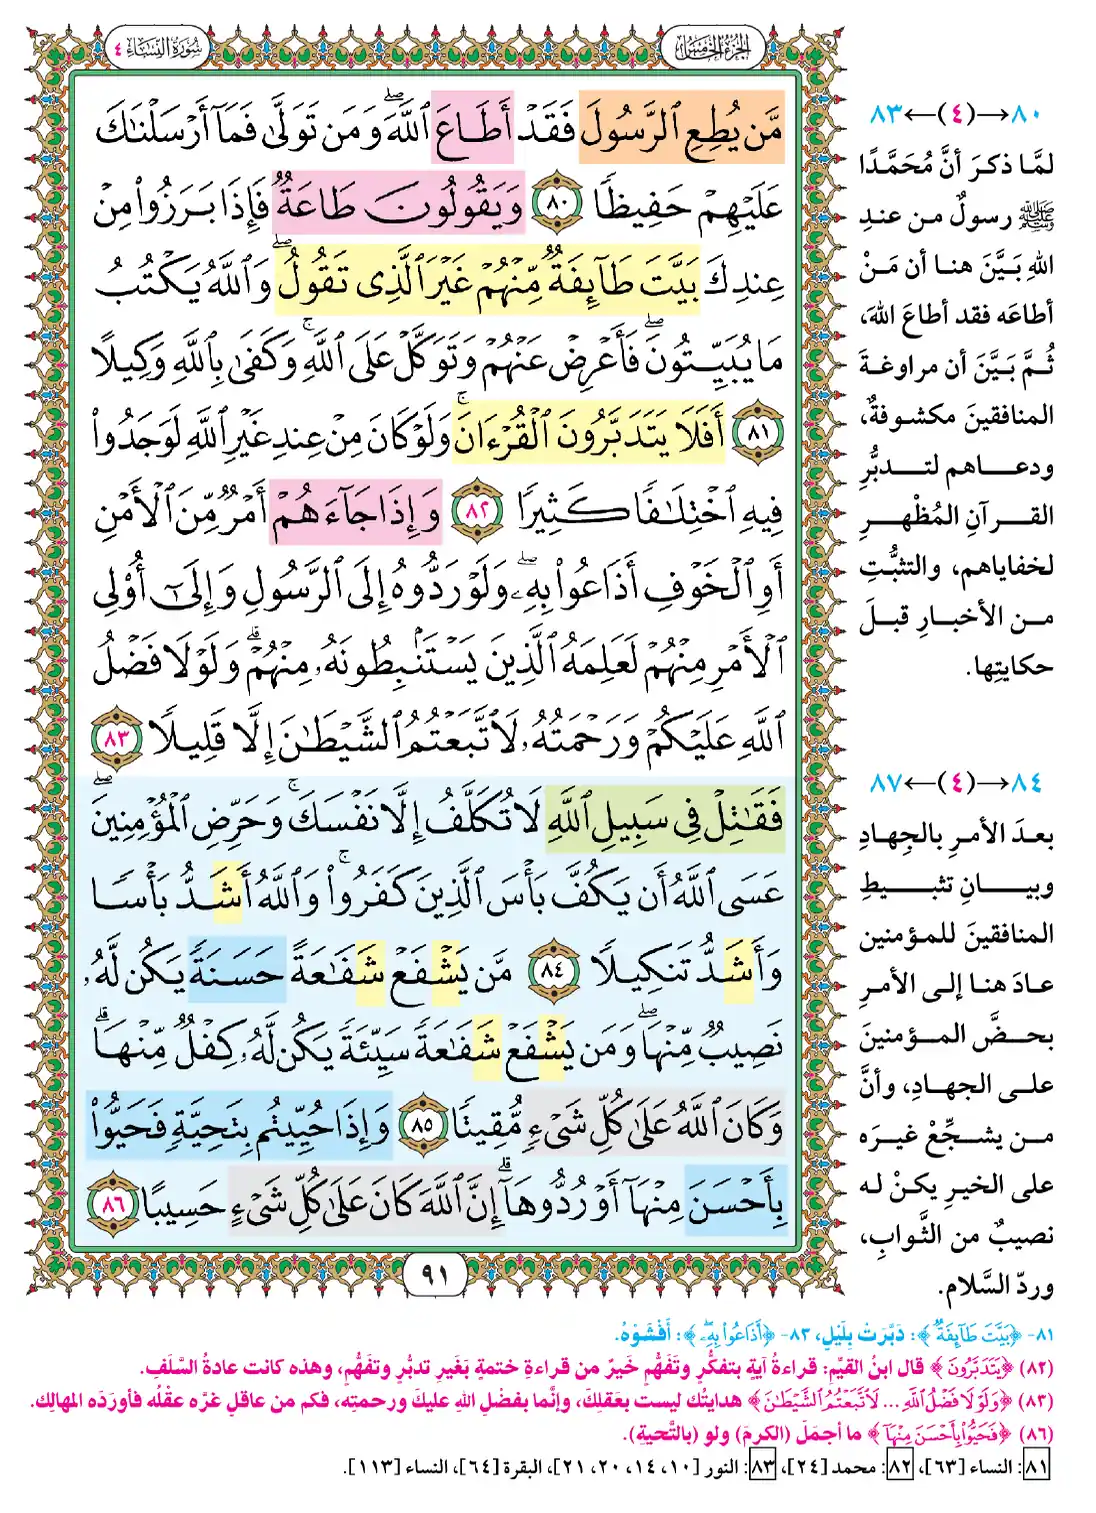 الجزء الخامس
سورة النساء ٤
مَّن يُطِعِ ٱلرَّسُولَ فَقَدْ أَطَاعَ ٱللَّهَ ۖ وَمَن تَوَلَّىٰ فَمَآ أَرْسَلْنَٰكَ
عَلَيْهِمْ حَفِيظًا ٨٠ وَيَقُولُونَ طَاعَةٌ فَإِذَا بَرَزُوا۟ مِنْ
عِندِكَ بَيَّتَ طَآئِفَةٌ مِّنْهُمْ غَيْرَ ٱلَّذِى تَقُولُ ۖ وَٱللَّهُ يَكْتُبُ
مَا يُبَيِّتُونَ ۖ فَأَعْرِضْ عَنْهُمْ وَتَوَكَّلْ عَلَى ٱللَّهِ ۚ وَكَفَىٰ بِٱللَّهِ وَكِيلًا
٨١ أَفَلَا يَتَدَبَّرُونَ ٱلْقُرْءَانَ ۚ وَلَوْ كَانَ مِنْ عِندِ غَيْرِ ٱللَّهِ لَوَجَدُوا۟
فِيهِ ٱخْتِلَٰفًا كَثِيرًا ٨٢ وَإِذَا جَآءَهُمْ أَمْرٌ مِّنَ ٱلْأَمْنِ
أَوِ ٱلْخَوْفِ أَذَاعُوا۟ بِهِۦ ۖ وَلَوْ رَدُّوهُ إِلَى ٱلرَّسُولِ وَإِلَىٰٓ أُو۟لِى
ٱلْأَمْرِ مِنْهُمْ لَعَلِمَهُ ٱلَّذِينَ يَسْتَنۢبِطُونَهُۥ مِنْهُمْ ۗ وَلَوْلَا فَضْلُ
ٱللَّهِ عَلَيْكُمْ وَرَحْمَتُهُۥ لَٱتَّبَعْتُمُ ٱلشَّيْطَٰنَ إِلَّا قَلِيلًا ٨٣
فَقَٰتِلْ فِى سَبِيلِ ٱللَّهِ لَا تُكَلَّفُ إِلَّا نَفْسَكَ ۚ وَحَرِّضِ ٱلْمُؤْمِنِينَ ۖ
عَسَى ٱللَّهُ أَن يَكُفَّ بَأْسَ ٱلَّذِينَ كَفَرُوا۟ ۚ وَٱللَّهُ أَشَدُّ بَأْسًا
وَأَشَدُّ تَنكِيلًا ٨٤ مَّن يَشْفَعْ شَفَٰعَةً حَسَنَةً يَكُن لَّهُۥ
نَصِيبٌ مِّنْهَا ۖ وَمَن يَشْفَعْ شَفَٰعَةً سَيِّئَةً يَكُن لَّهُۥ كِفْلٌ مِّنْهَا ۗ
وَكَانَ ٱللَّهُ عَلَىٰ كُلِّ شَىْءٍ مُّقِيتًا ٨٥ وَإِذَا حُيِّيتُم بِتَحِيَّةٍ فَحَيُّوا۟
بِأَحْسَنَ مِنْهَآ أَوْ رُدُّوهَآ ۗ إِنَّ ٱللَّهَ كَانَ عَلَىٰ كُلِّ شَىْءٍ حَسِيبًا ٨٦
٩١
٨٠→(٤)←٨٣
لمَّا ذكرَ أنَّ مُحَمَّدًا
ﷺ رسولٌ من عندِ
اللهِ بَيَّنَ هنا أن مَنْ
أطاعَه فقد أطاعَ اللهَ،
ثُمَّ بَيَّنَ أن مراوغةَ
المنافقينَ مكشوفةٌ،
ودعاهم لتدبُّرِ
القرآنِ المُظْهِرِ
لخفاياهم، والتثبُّتِ
من الأخبارِ قبلَ
حكايتِها.
٨٤→(٤)←٨٧
بعدَ الأمرِ بالجِهادِ
وبيانِ تثبيطِ
المنافقينَ للمؤمنين
عادَ هنا إلى الأمرِ
بحضَّ المؤمنينَ
على الجهادِ، وأنَّ
من يشجِّعْ غيرَه
على الخيرِ يكنْ له
نصيبٌ من الثَّوابِ،
وردّ السَّلام.
٨١- ﴿بَيَّتَ طَآئِفَةٌ﴾: دَبَّرَتْ بِلَيْلٍ، ٨٣- ﴿أَذَاعُوا۟ بِهِۦ ۖ﴾: أَفْشَوْهُ.
(٨٢) ﴿يَتَدَبَّرُونَ﴾ قال ابنُ القيِّمِ: قراءةُ آيةٍ بتفكُّرٍ وتَفَهُّمٍ خَيرٌ من قراءةِ ختمةٍ بغَيرِ تدبُّرٍ وتفَهُّمٍ، وهذه كانت عادةُ السَّلَفِ.
(٨٣) ﴿وَلَوْلَا فَضْلُ ٱللَّهِ ... لَٱتَّبَعْتُمُ ٱلشَّيْطَٰنَ﴾ هدايتُك ليست بعَقلِكَ، وإنَّما بفضْلِ اللهِ عليكَ ورحمتِه، فكم من عاقلٍ غرَّه عقْلُه فأورَدَه المهالِك.
(٨٦) ﴿فَحَيُّوا۟ بِأَحْسَنَ مِنْهَآ﴾ ما أجمَلَ (الكرمَ) ولو (بالتَّحيةِ).
٨١: النساء [٦٣]، ٨٢: محمد [٢٤]، ٨٣: النور [١٠، ١٤، ٢٠، ٢١]، البقرة [٦٤]، النساء [١١٣].